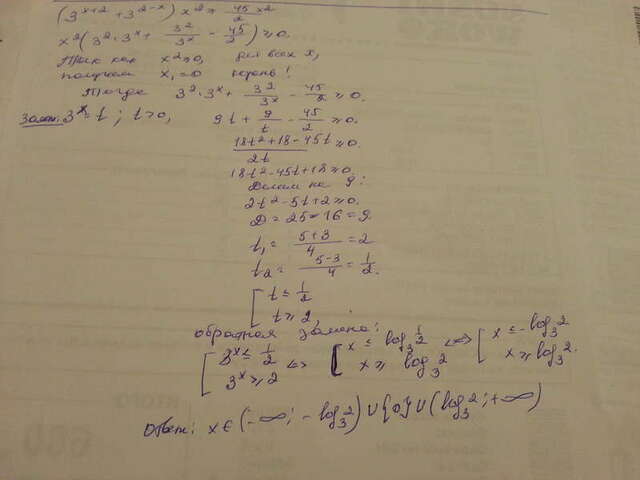 (3^{x+2} + 3^{2-x}) x² ≥ 45/2 x²
x²(3²·3^x + 3²/3^x - 45/2) ≥ 0.
Так как x² ≥ 0, для всех x,
получаем x₁ = 0 корень!
Тогда 3²·3^x + 3²/3^x - 45/2 ≥ 0.
Замен. 3^x = t ; t > 0, 9t + 9/t - 45/2 ≥ 0.
(18t² + 18 - 45t)/2t ≥ 0.
18t² - 45t + 18 ≥ 0.
Делим на 9:
2t² - 5t + 2 ≥ 0.
D = 25 - 16 = 9.
t₁ = (5+3)/4 = 2
t₂ = (5-3)/4 = 1/2.
[ t ≤ 1/2
t ≥ 2,
обратная замена:
[ 3^x ≤ 1/2 ⇔ [ x ≤ log₃ 1/2 ⇔ [ x ≤ -log₃ 2
3^x ≥ 2 x ≥ log₃ 2 x ≥ log₃ 2.
Ответ: x ∈ (-∞; -log₃ 2) ∪ {0} ∪ (log₃ 2; +∞)